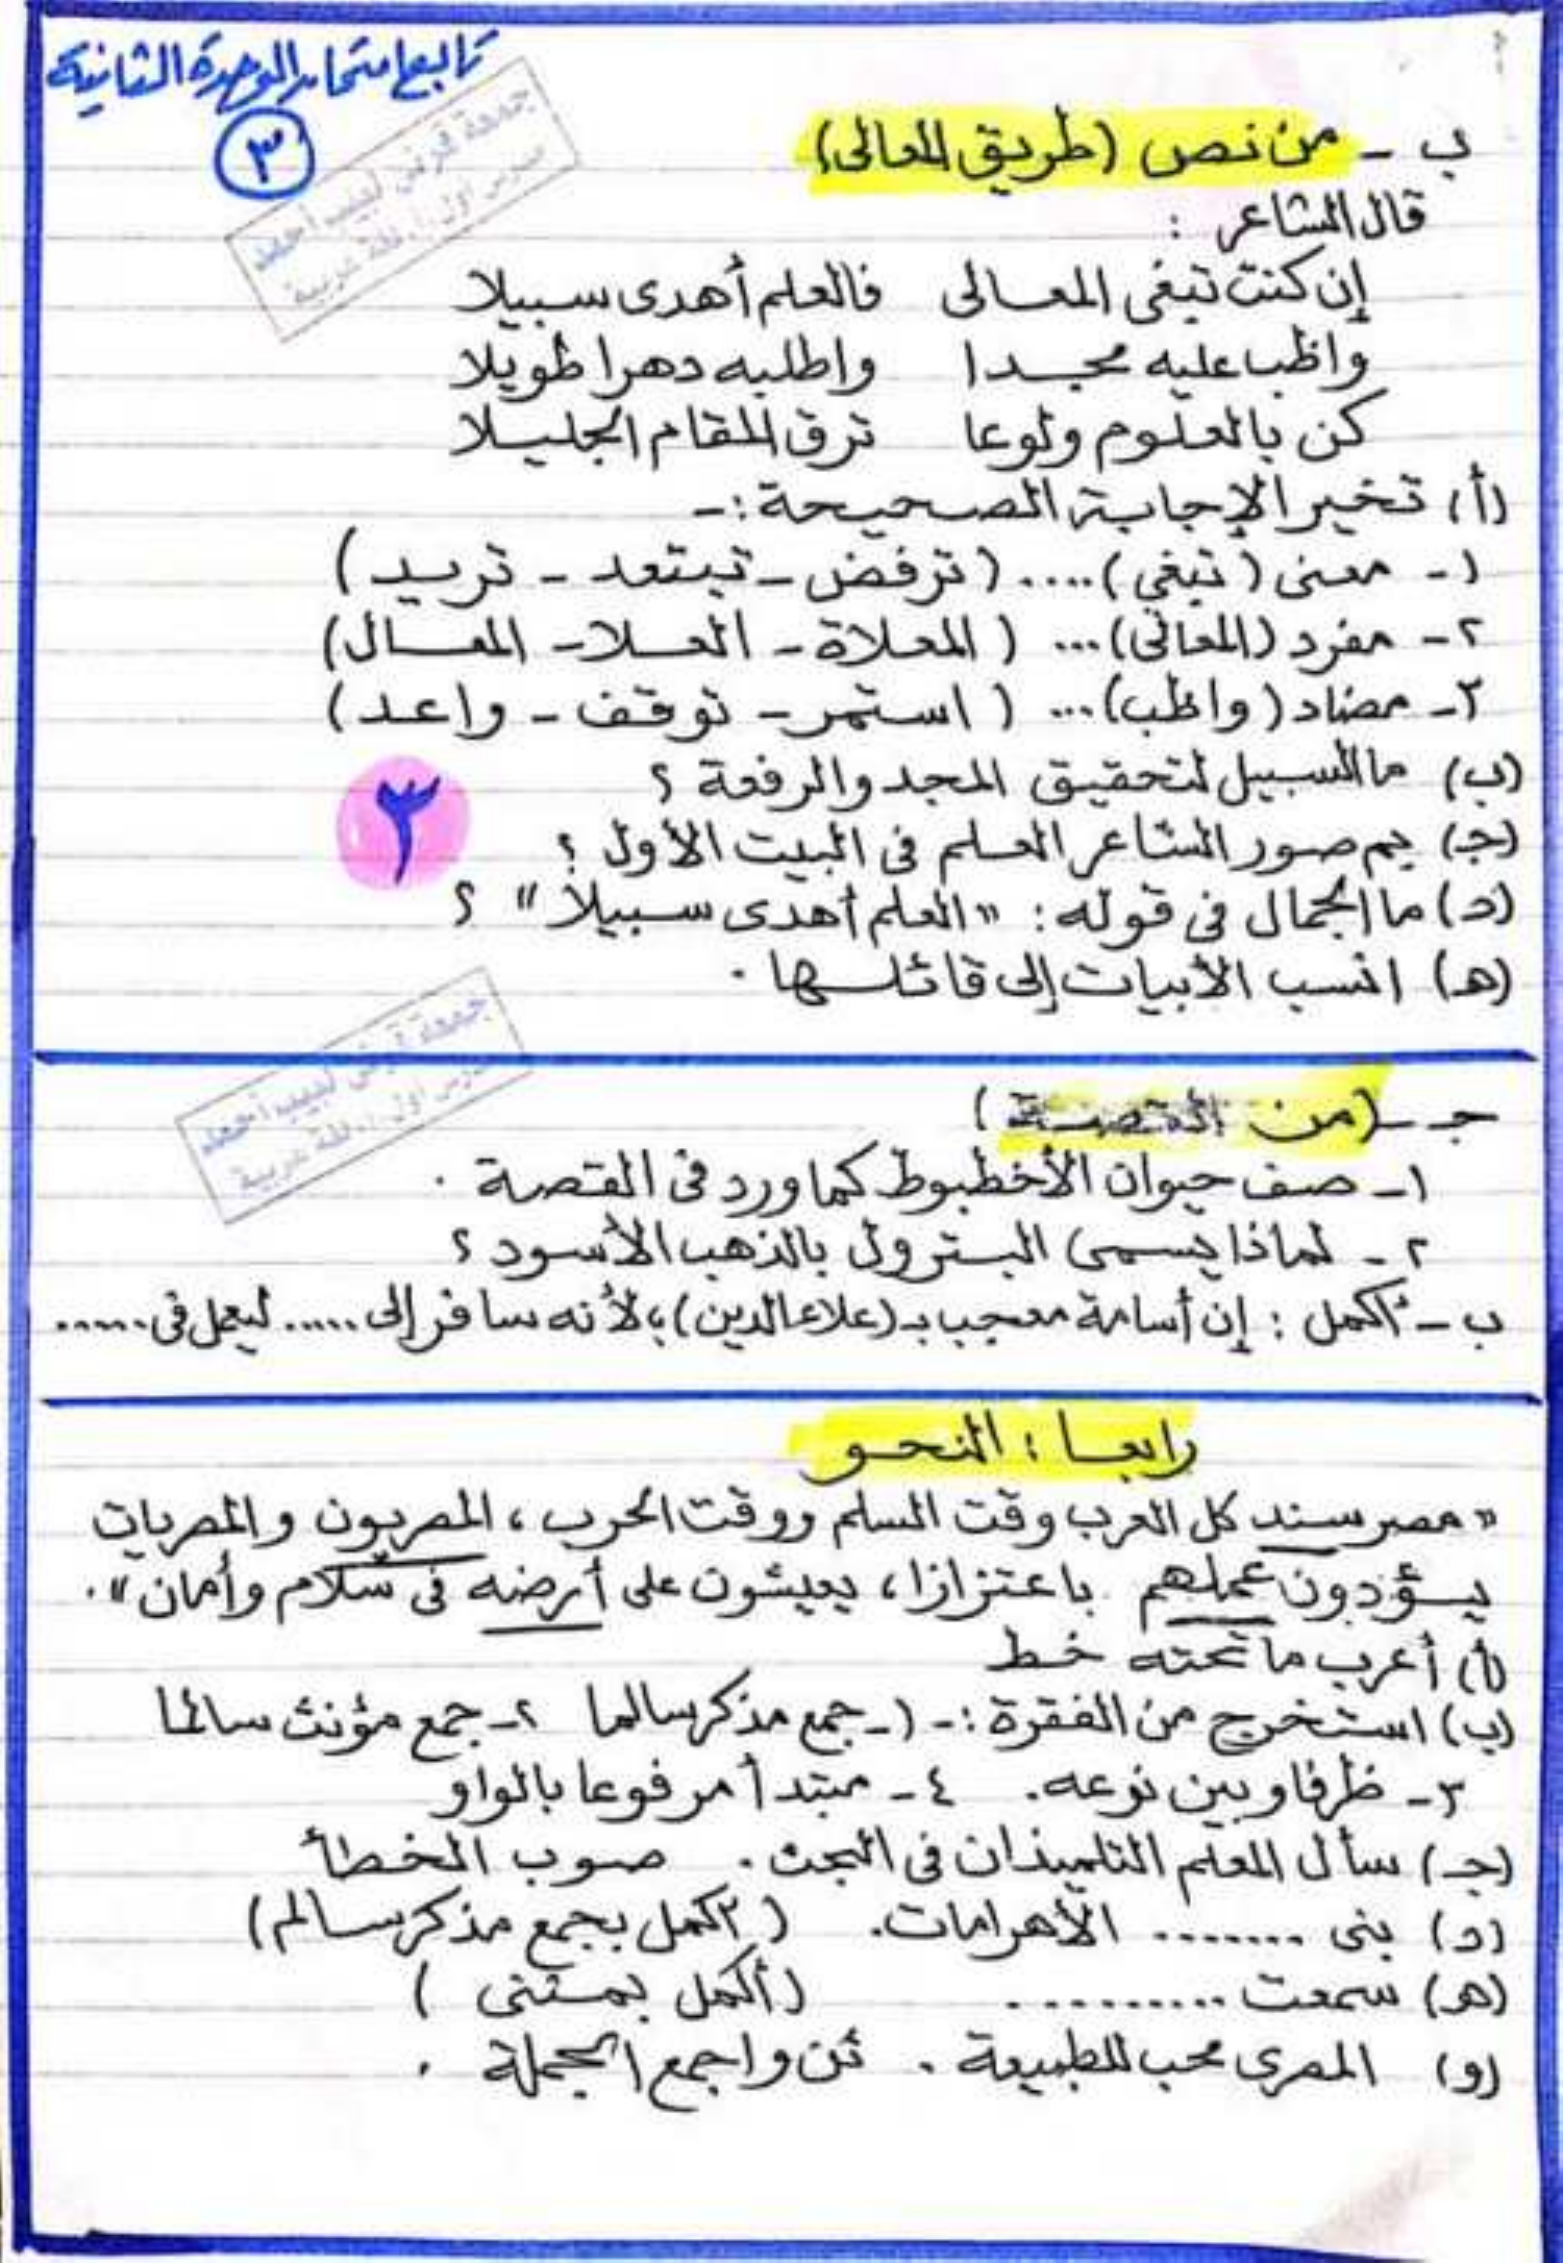 تابع امتحان الوحدة الثانية
٣
ب - من نص (طريق المعالى)
قال الشاعر :
إن كنت تبغى المعالى فالعلم أهدى سبيلا
واظب عليه مجدا واطلبه دهرا طويلا
كن بالعلوم ولوعا ترق المقام الجليلا
(أ) تخير الإجابة الصحيحة :-
١- معنى (تبغى) .... (ترفض - تبتعد - تريد)
٢- مفرد (المعالى) ... (المعلاة - العلا - المعال)
٣- مضاد (واظب) ... (استمر - توقف - واعد)
(ب) ما السبيل لتحقيق المجد والرفعة ؟
(جـ) بم صور الشاعر العلم فى البيت الأول ؟
(د) ما الجمال فى قوله : " العلم أهدى سبيلا " ؟
(هـ) انسب الأبيات إلى قائلها .
٣
جـ - (من القصة)
١- صف حيوان الأخطبوط كما ورد فى القصة .
٢- لماذا يسمى البترول بالذهب الأسود ؟
ب - أكمل : إن أسامة معجب بـ (علاء الدين) ؛ لأنه سافر إلى ..... ليعمل فى ......
رابعا : النحو
" مصر سند كل العرب وقت السلم ووقت الحرب ، المصريون والمصريات
يؤدون عملهم باعتزازا ، يعيشون على أرضه فى سلام وأمان " .
(أ) أعرب ما تحته خط
(ب) استخرج من الفقرة :- ١- جمع مذكر سالما ٢- جمع مؤنث سالما
٣- ظرفا وبين نوعه . ٤- مبتدأ مرفوعا بالواو
(جـ) سأل المعلم التلميذان فى البحث . صوب الخطأ
(د) بنى ....... الأهرامات . (أكمل بجمع مذكر سالم)
(هـ) سمعت .......... (أكمل بمثنى)
(و) المصرى محب للطبيعة . ثن واجمع الجملة .
جمعة قرنى لبيب أحمد
مدرس أول أ. لغة عربية
جمعة قرنى لبيب أحمد
مدرس أول أ. لغة عربية